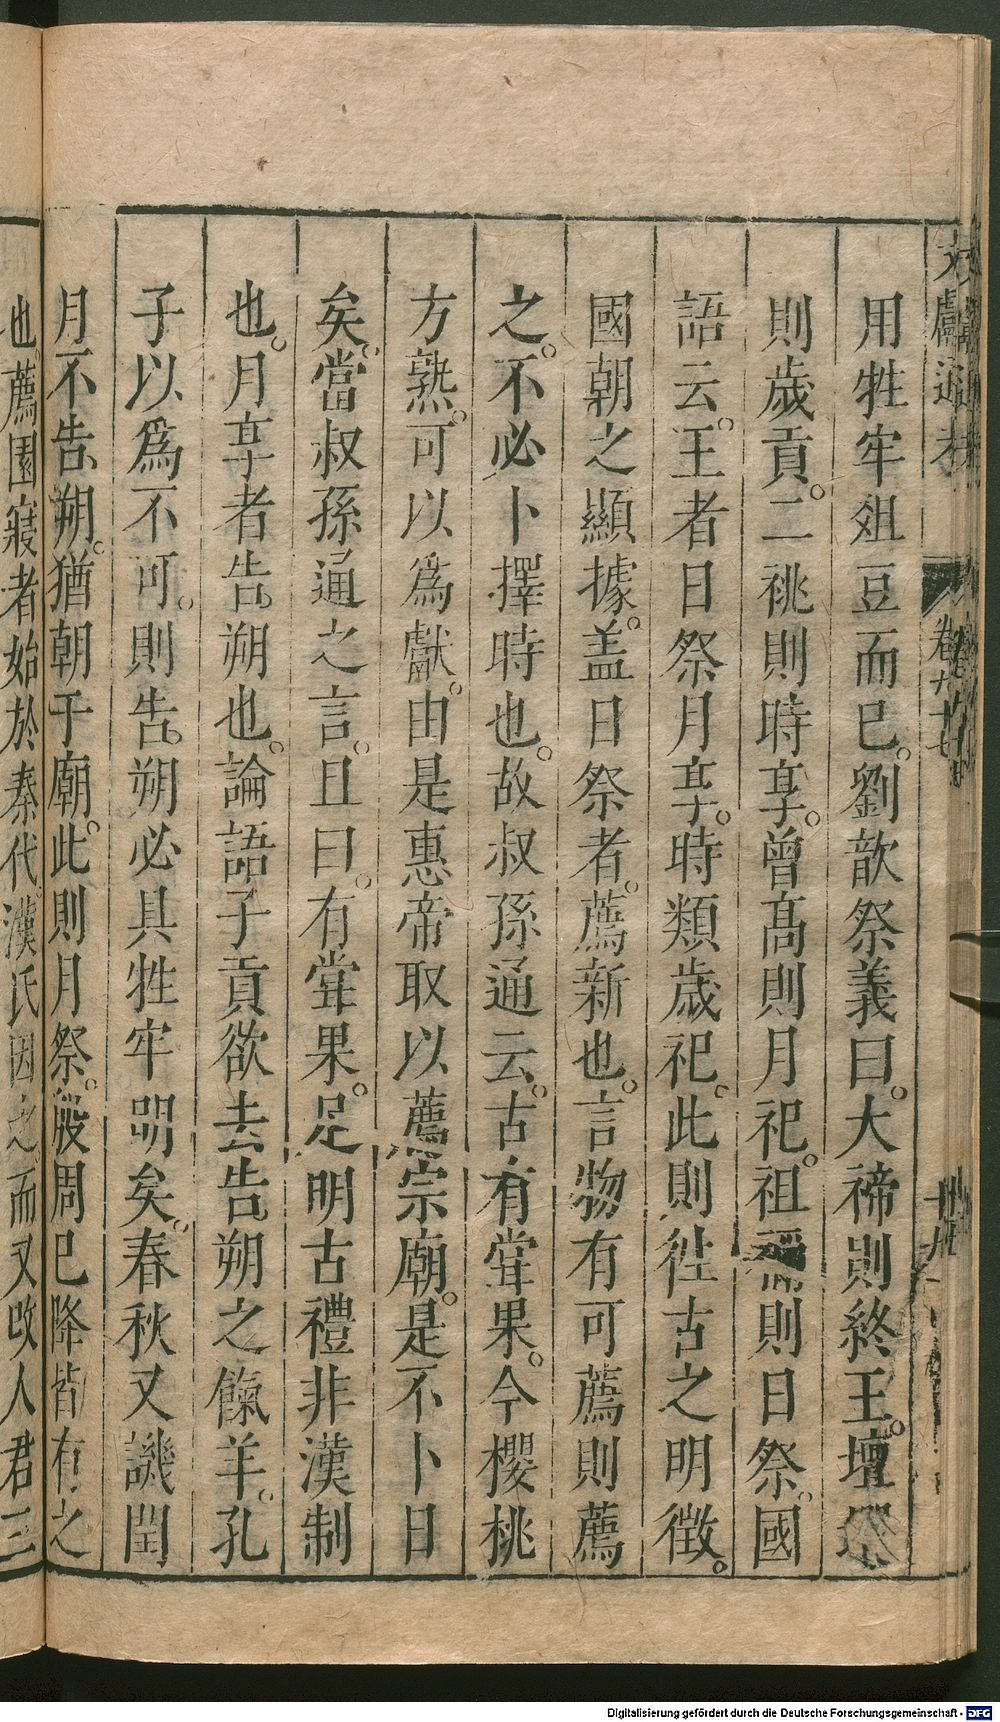 文獻通考 卷九十七 十九
用牲牢俎豆而已。劉歆祭義曰。大禘則終王。壇墠
則歲貢。二祧則時享。曾高則月祀。祖禰則日祭。國
語云。王者日祭月享。時類歲祀。此則徃古之明徵。
國朝之顯據。盖日祭者。薦新也。言物有可薦則薦
之。不必卜擇時也。故叔孫通云。古有甞果。今櫻桃
方熟。可以爲獻。由是惠帝取以薦宗廟。是不卜日
矣。當叔孫通之言。且曰。有甞果。足明古禮非漢制
也。月享者告朔也。論語子貢欲去告朔之餼羊。孔
子以爲不可。則告朔必具牲牢明矣。春秋又譏閏
月不告朔。猶朝于廟。此則月祭。殷周已降皆有之
也。薦園寢者始於秦代漢氏因之。而又改人君三
Digitalisierung gefördert durch die Deutsche Forschungsgemeinschaft - DFG